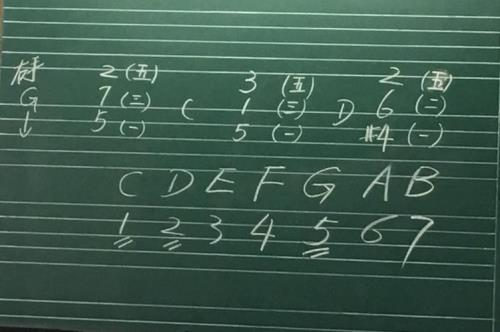 右手 2 (五) 3 (五) 2 (五)
G 7 (三) C 1 (三) D 6 (二)
↓ 5 (一) 5 (一) #4 (一)
C D E F G A B
1 2 3 4 5 6 7